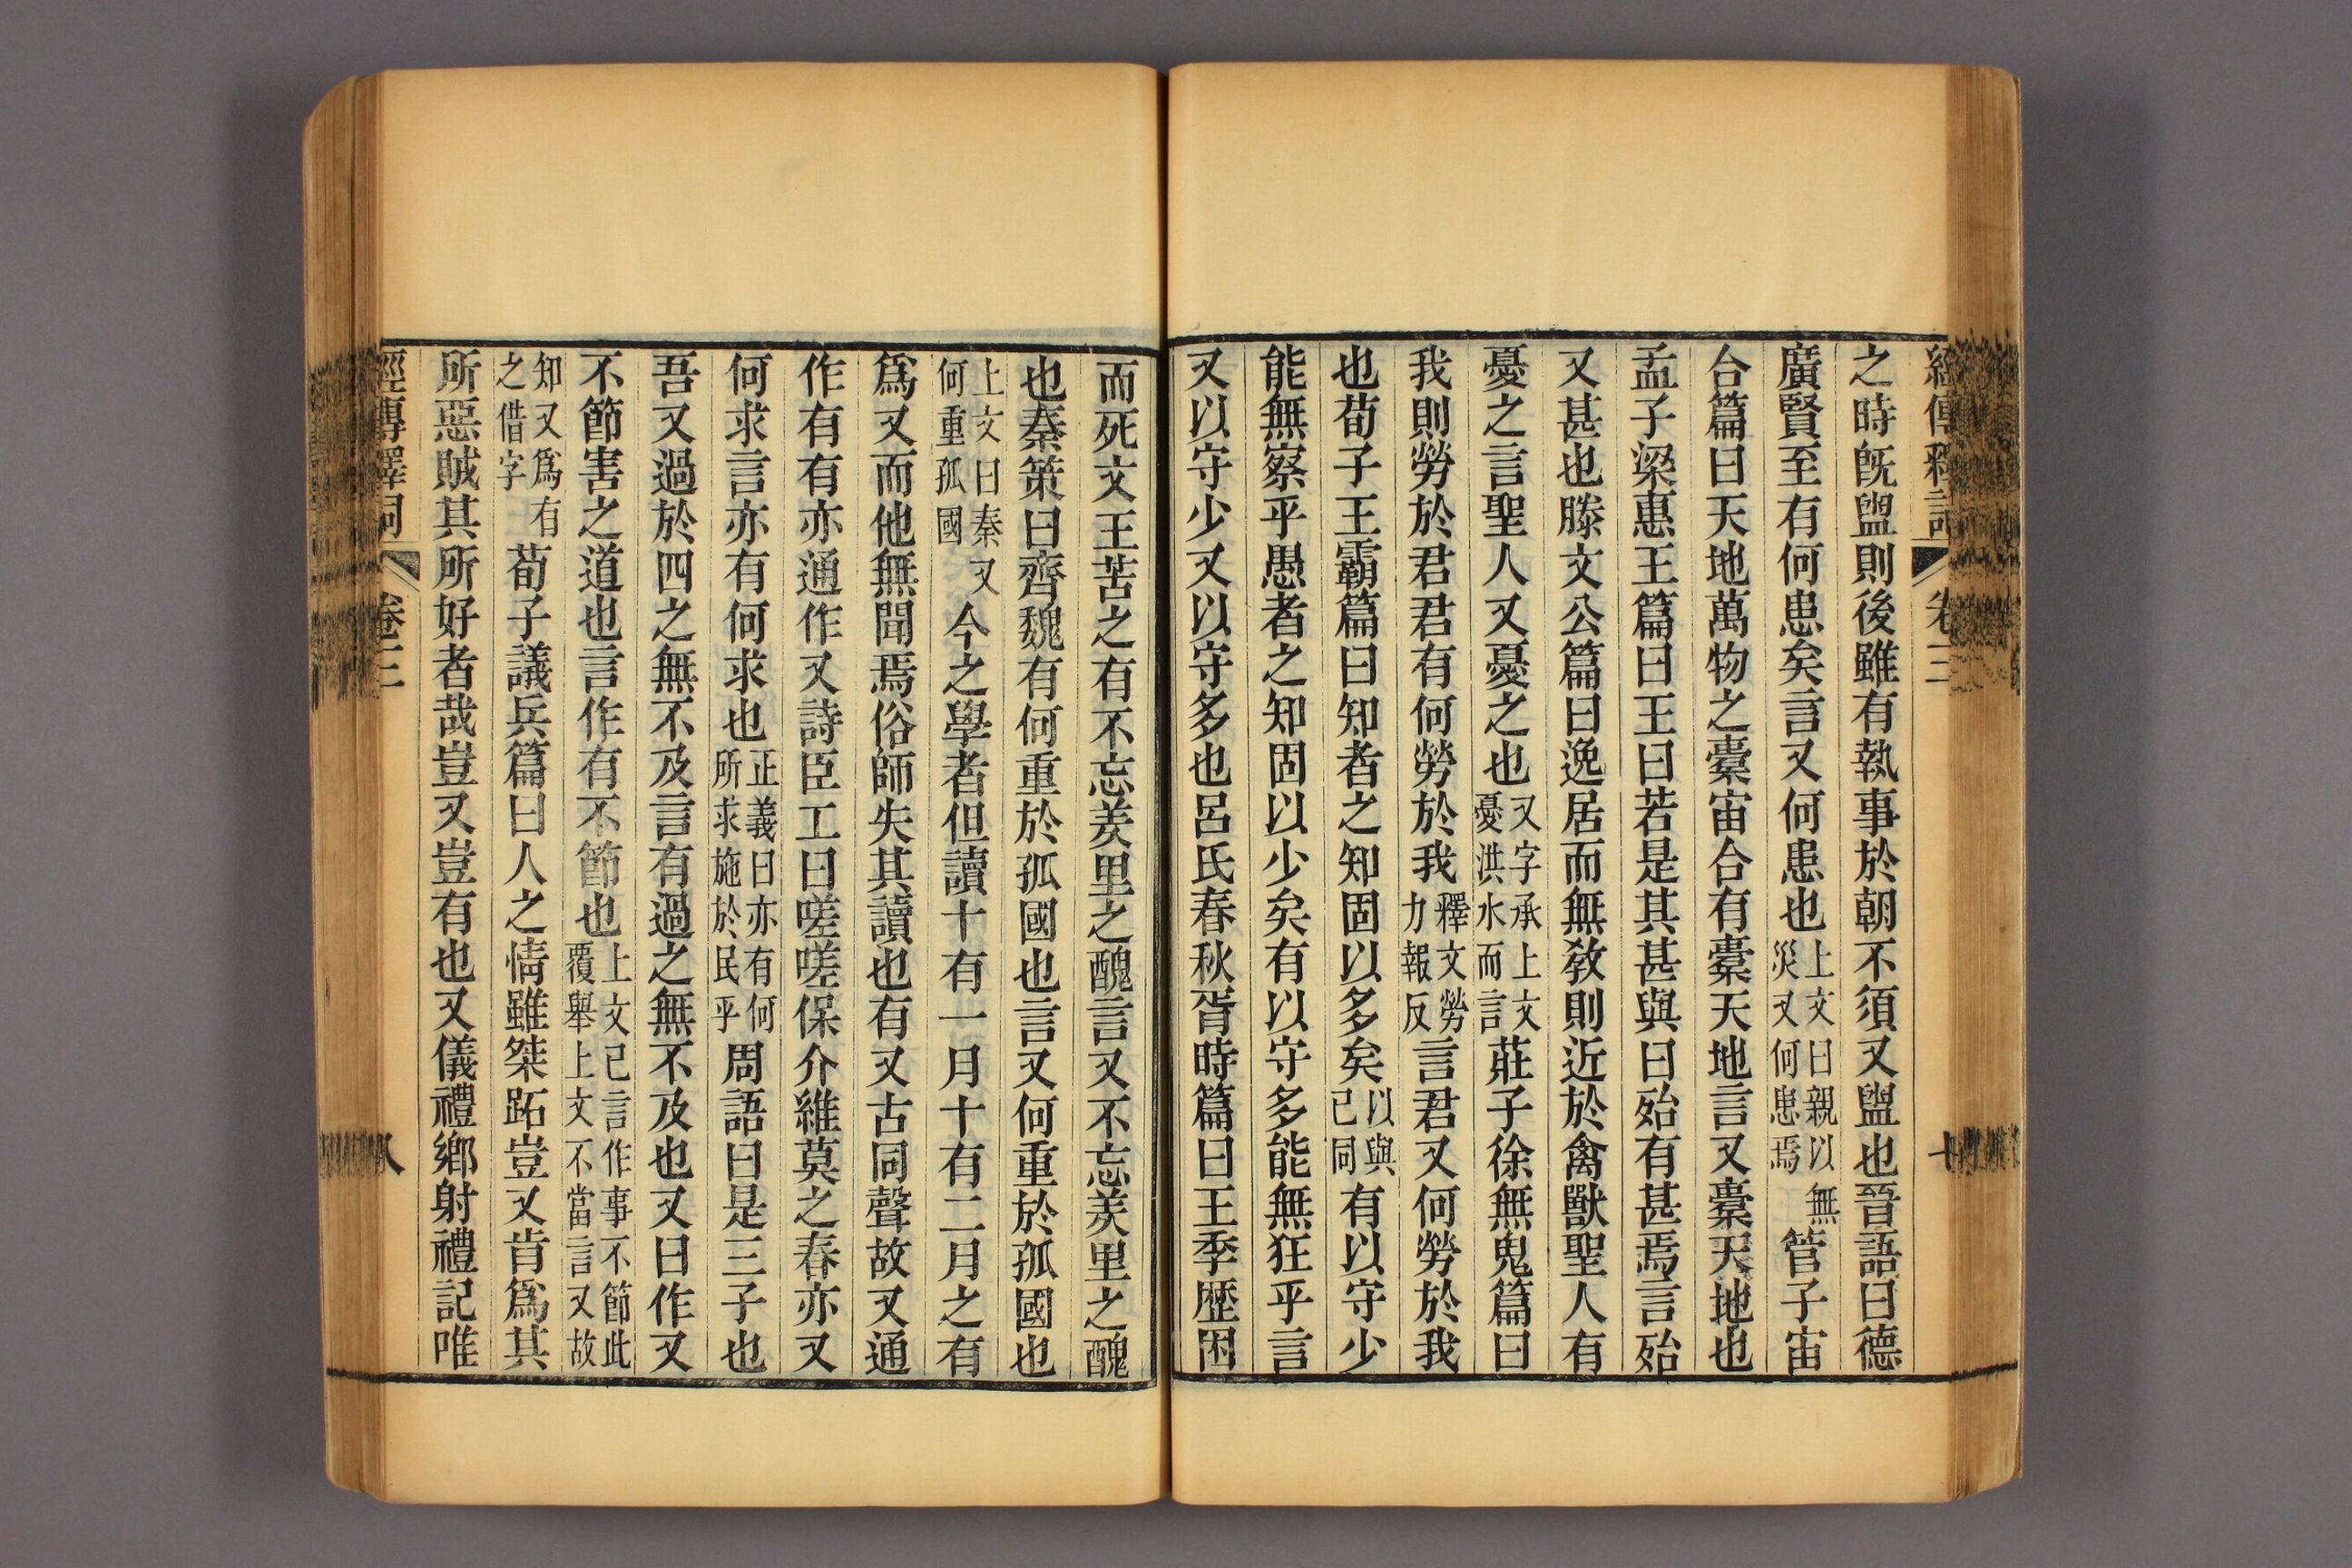 經傳釋詞 卷三 十
之時旣盥則後雖有執事於朝不須又盥也晉語曰德
廣賢至有何患矣言又何患也上文曰親以無災又何患焉管子宙
合篇曰天地萬物之橐宙合有橐天地言又橐天地也
孟子梁惠王篇曰王曰若是其甚與曰殆有甚焉言殆
又甚也滕文公篇曰逸居而無敎則近於禽獸聖人有
憂之言聖人又憂之也又字承上文憂洪水而言莊子徐無鬼篇曰
我則勞於君君有何勞於我釋文勞力報反言君又何勞於我
也荀子王霸篇曰知者之知固以多矣以與已同有以守少
能無察乎愚者之知固以少矣有以守多能無狂乎言
又以守少又以守多也呂氏春秋胥時篇曰王季歷困
而死文王苦之有不忘羑里之醜言又不忘羑里之醜
也秦策曰齊魏有何重於孤國也言又何重於孤國也
上文曰秦又何重孤國今之學者但讀十有一月十有二月之有
爲又而他無聞焉俗師失其讀也有又古同聲故又通
作有有亦通作又詩臣工曰嗟嗟保介維莫之春亦又
何求言亦有何求也正義曰亦有何所求施於民乎周語曰是三子也
吾又過於四之無不及言有過之無不及也又曰作又
不節害之道也言作有不節也上文已言作事不節此覆舉上文不當言又故
知又爲有之借字荀子議兵篇曰人之情雖桀跖豈又肯爲其
所惡賊其所好者哉豈又豈有也又儀禮鄉射禮記唯
經傳釋詞 卷三 八